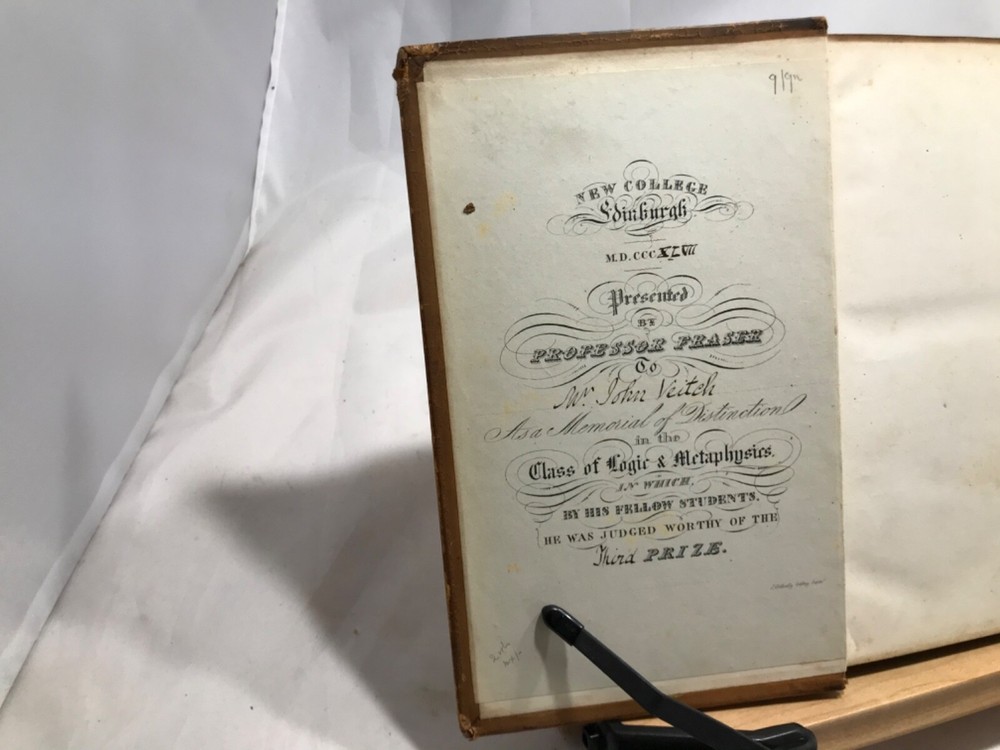 NEW COLLEGE
Edinburgh
M.D.CCCXLVII
Presented
BY
PROFESSOR FRASER
To
Mr. John Veitch
As a Memorial of Distinction
in the
Class of Logic & Metaphysics.
IN WHICH,
BY HIS FELLOW STUDENTS.
HE WAS JUDGED WORTHY OF THE
Third PRIZE.